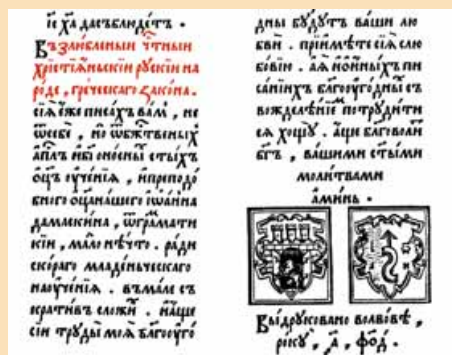 і҃с х҃а да съблюдетъ .
Възлюбленыи ч҃тныи
хрⷭ҇тїѧньскїи рускїи на
роде , греческаго закона .
сїѧ еже писах вам , не
ѿ себе , но ѿ бж҃твеных
ап҃лъ и б҃гоносныⷯ ст҃ых
ѿц҃ъ оучениѧ , и преподо
бного ѿц҃а нашего ї҆ѡанна
дамаскина , ѿ граматі
кїи , мало нѣчто . ради
скораго младеньческаго
наоученїѧ . въмале съ
кратив сложиⷯ . и аще
сїи труды моѧ благоуго
дны будутъ ваши лю
бви . прїимѣте сїѧ с лю
бовїю . а ѧ и о иныхъ пи
санїихъ благооугодныⷯ с
вожделѣнїеⷨ потрудити
сѧ хощу . аще благоволи
бг҃ъ , вашими ст҃ыми
молитвами
аминь .
Выдруковано во лвовѣ ,
року , ҂а҃ , ф҃о҃д .